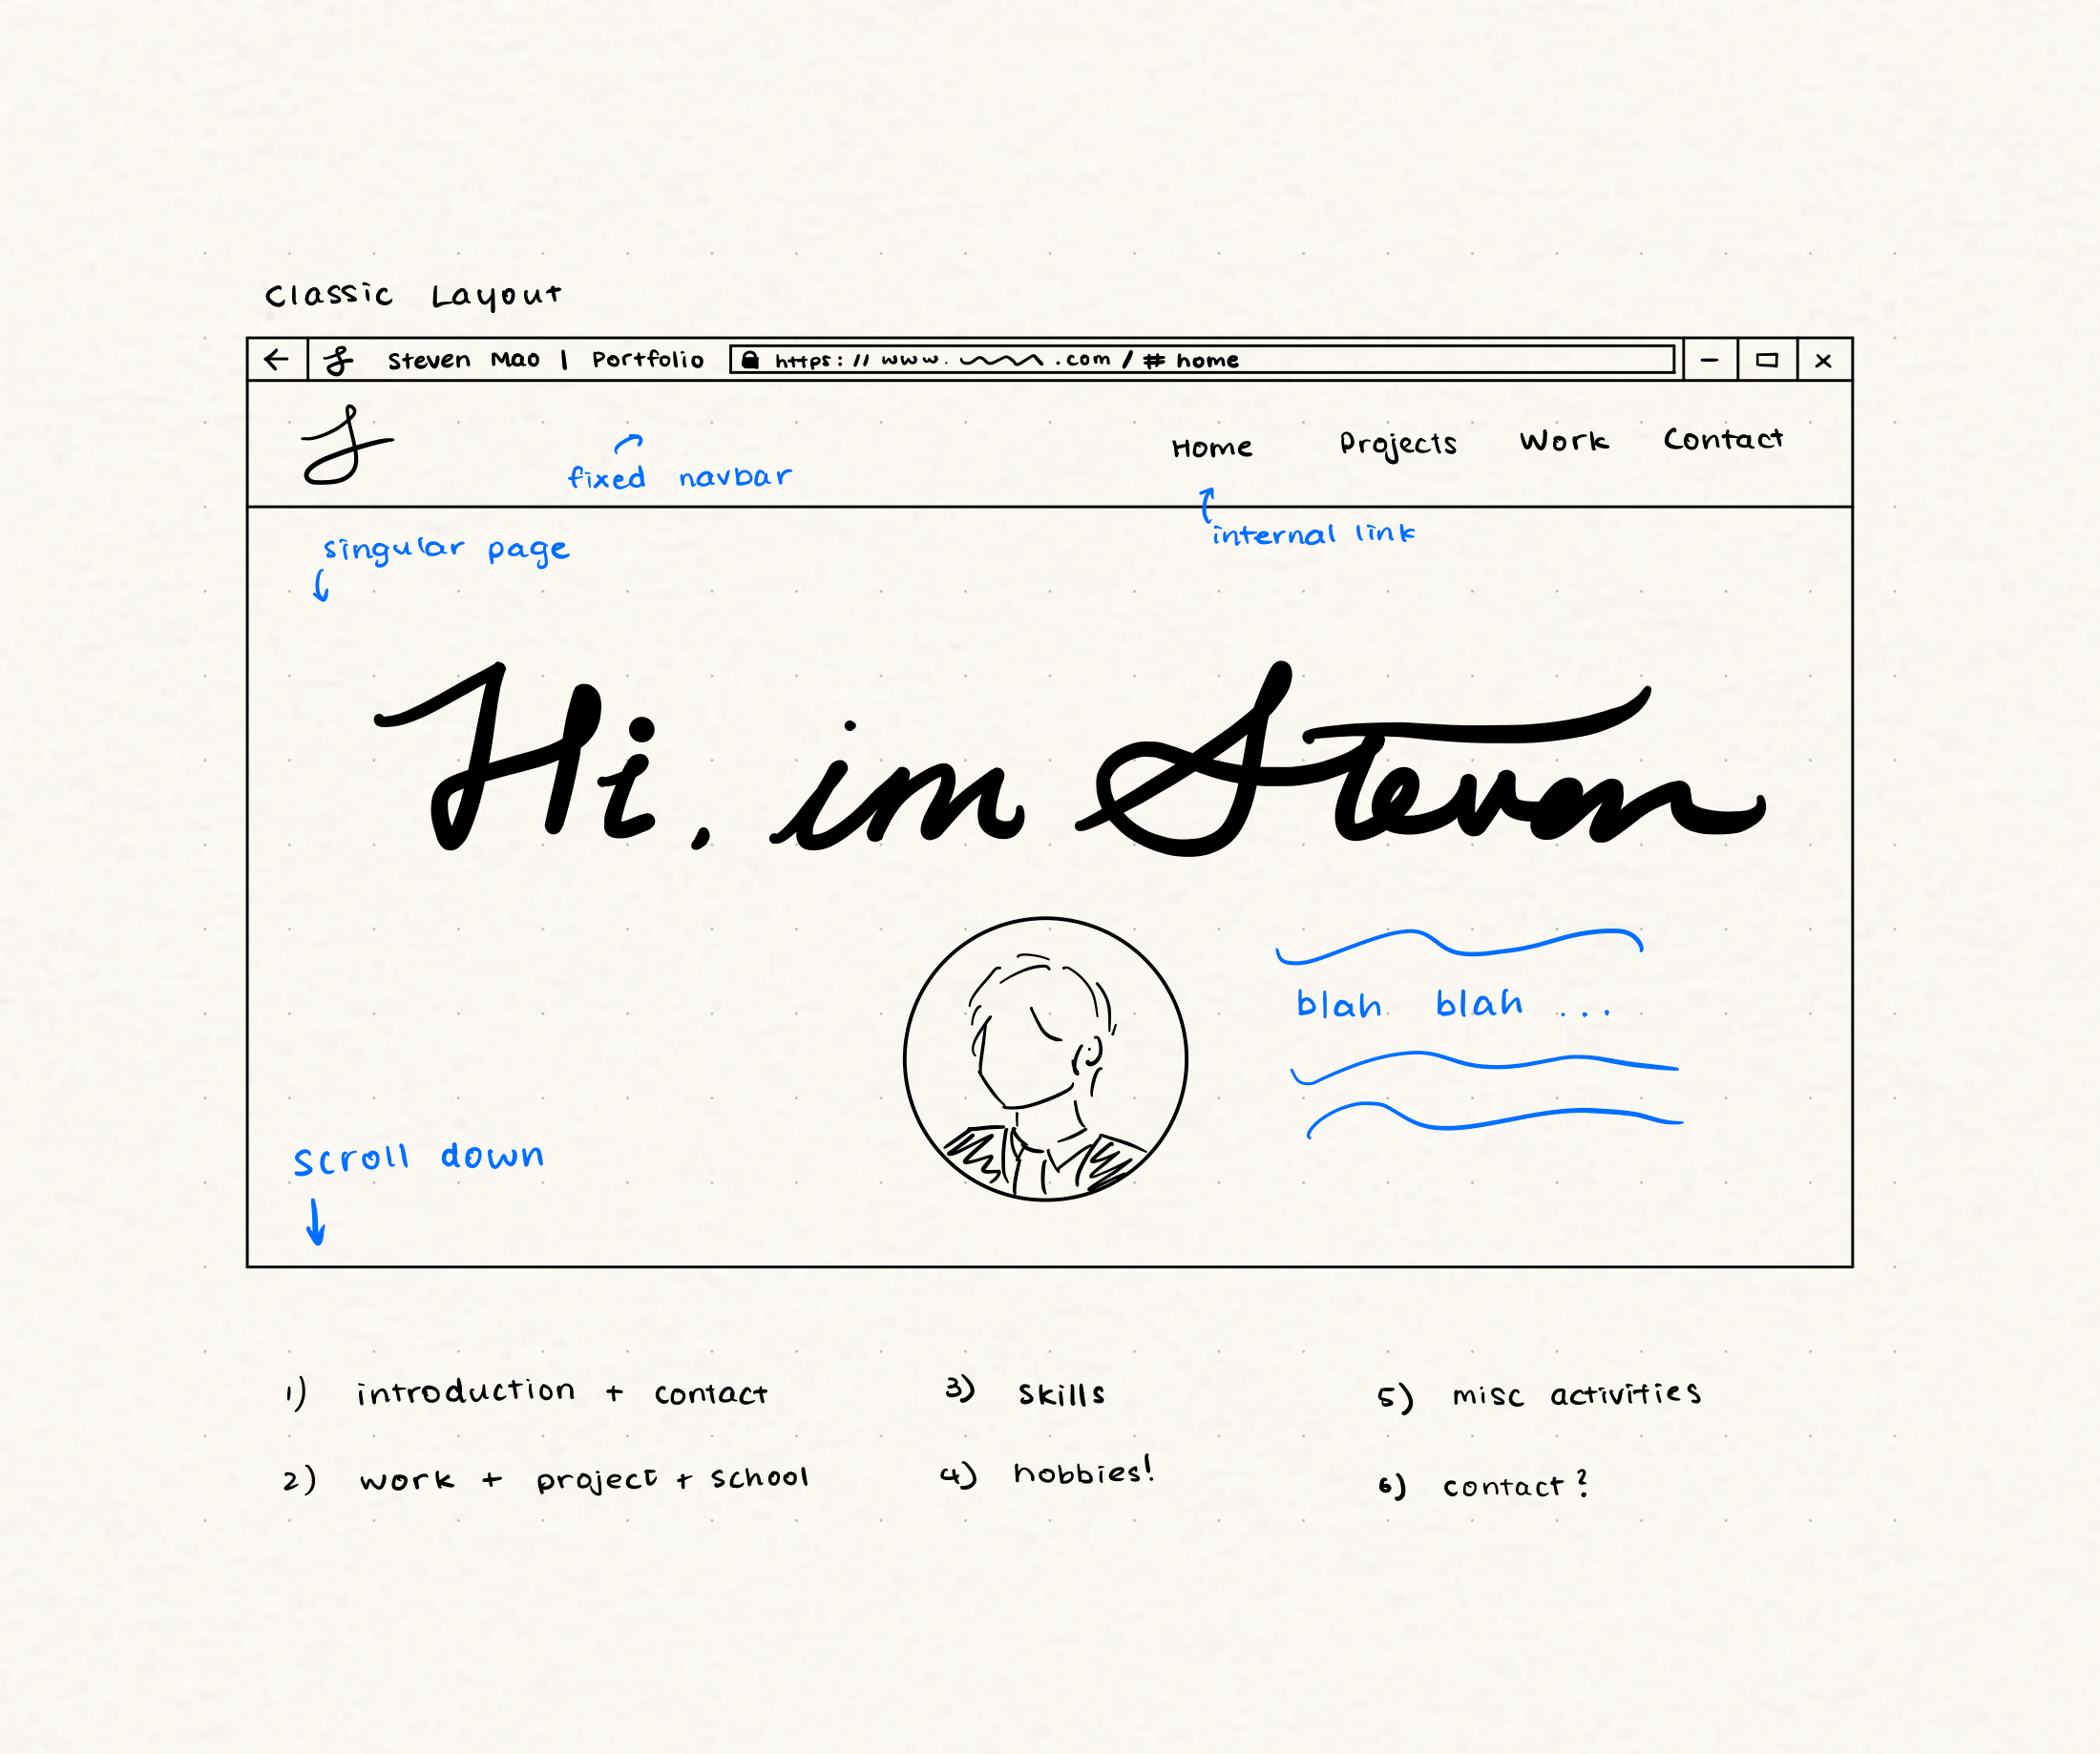 Classic Layout
Steven Mao | Portfolio
https://www. .com/#home
Home Projects Work Contact
fixed navbar
internal link
singular page
Hi. im Steven
blah blah ...
scroll down
1) introduction + contact
2) work + project + school
3) skills
4) hobbies!
5) misc activities
6) contact?